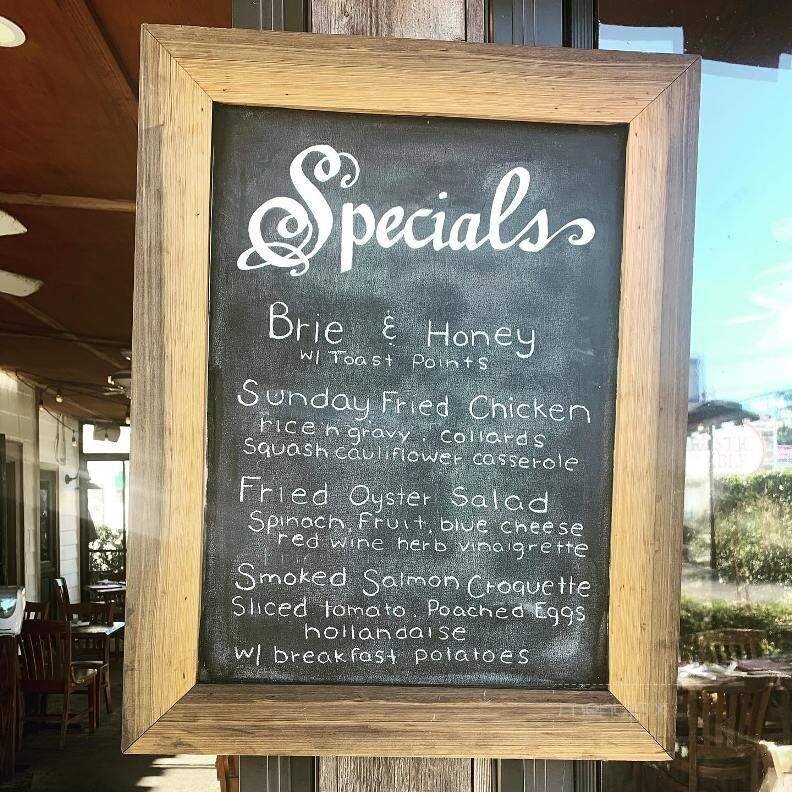 Specials
Brie & Honey
w/ Toast Points
Sunday Fried Chicken
rice n gravy. collards
squash cauliflower casserole
Fried Oyster Salad
Spinach, Fruit, blue cheese
red wine herb vinaigrette
Smoked Salmon Croquette
Sliced tomato. Poached Eggs
hollandaise
w/ breakfast potatoes